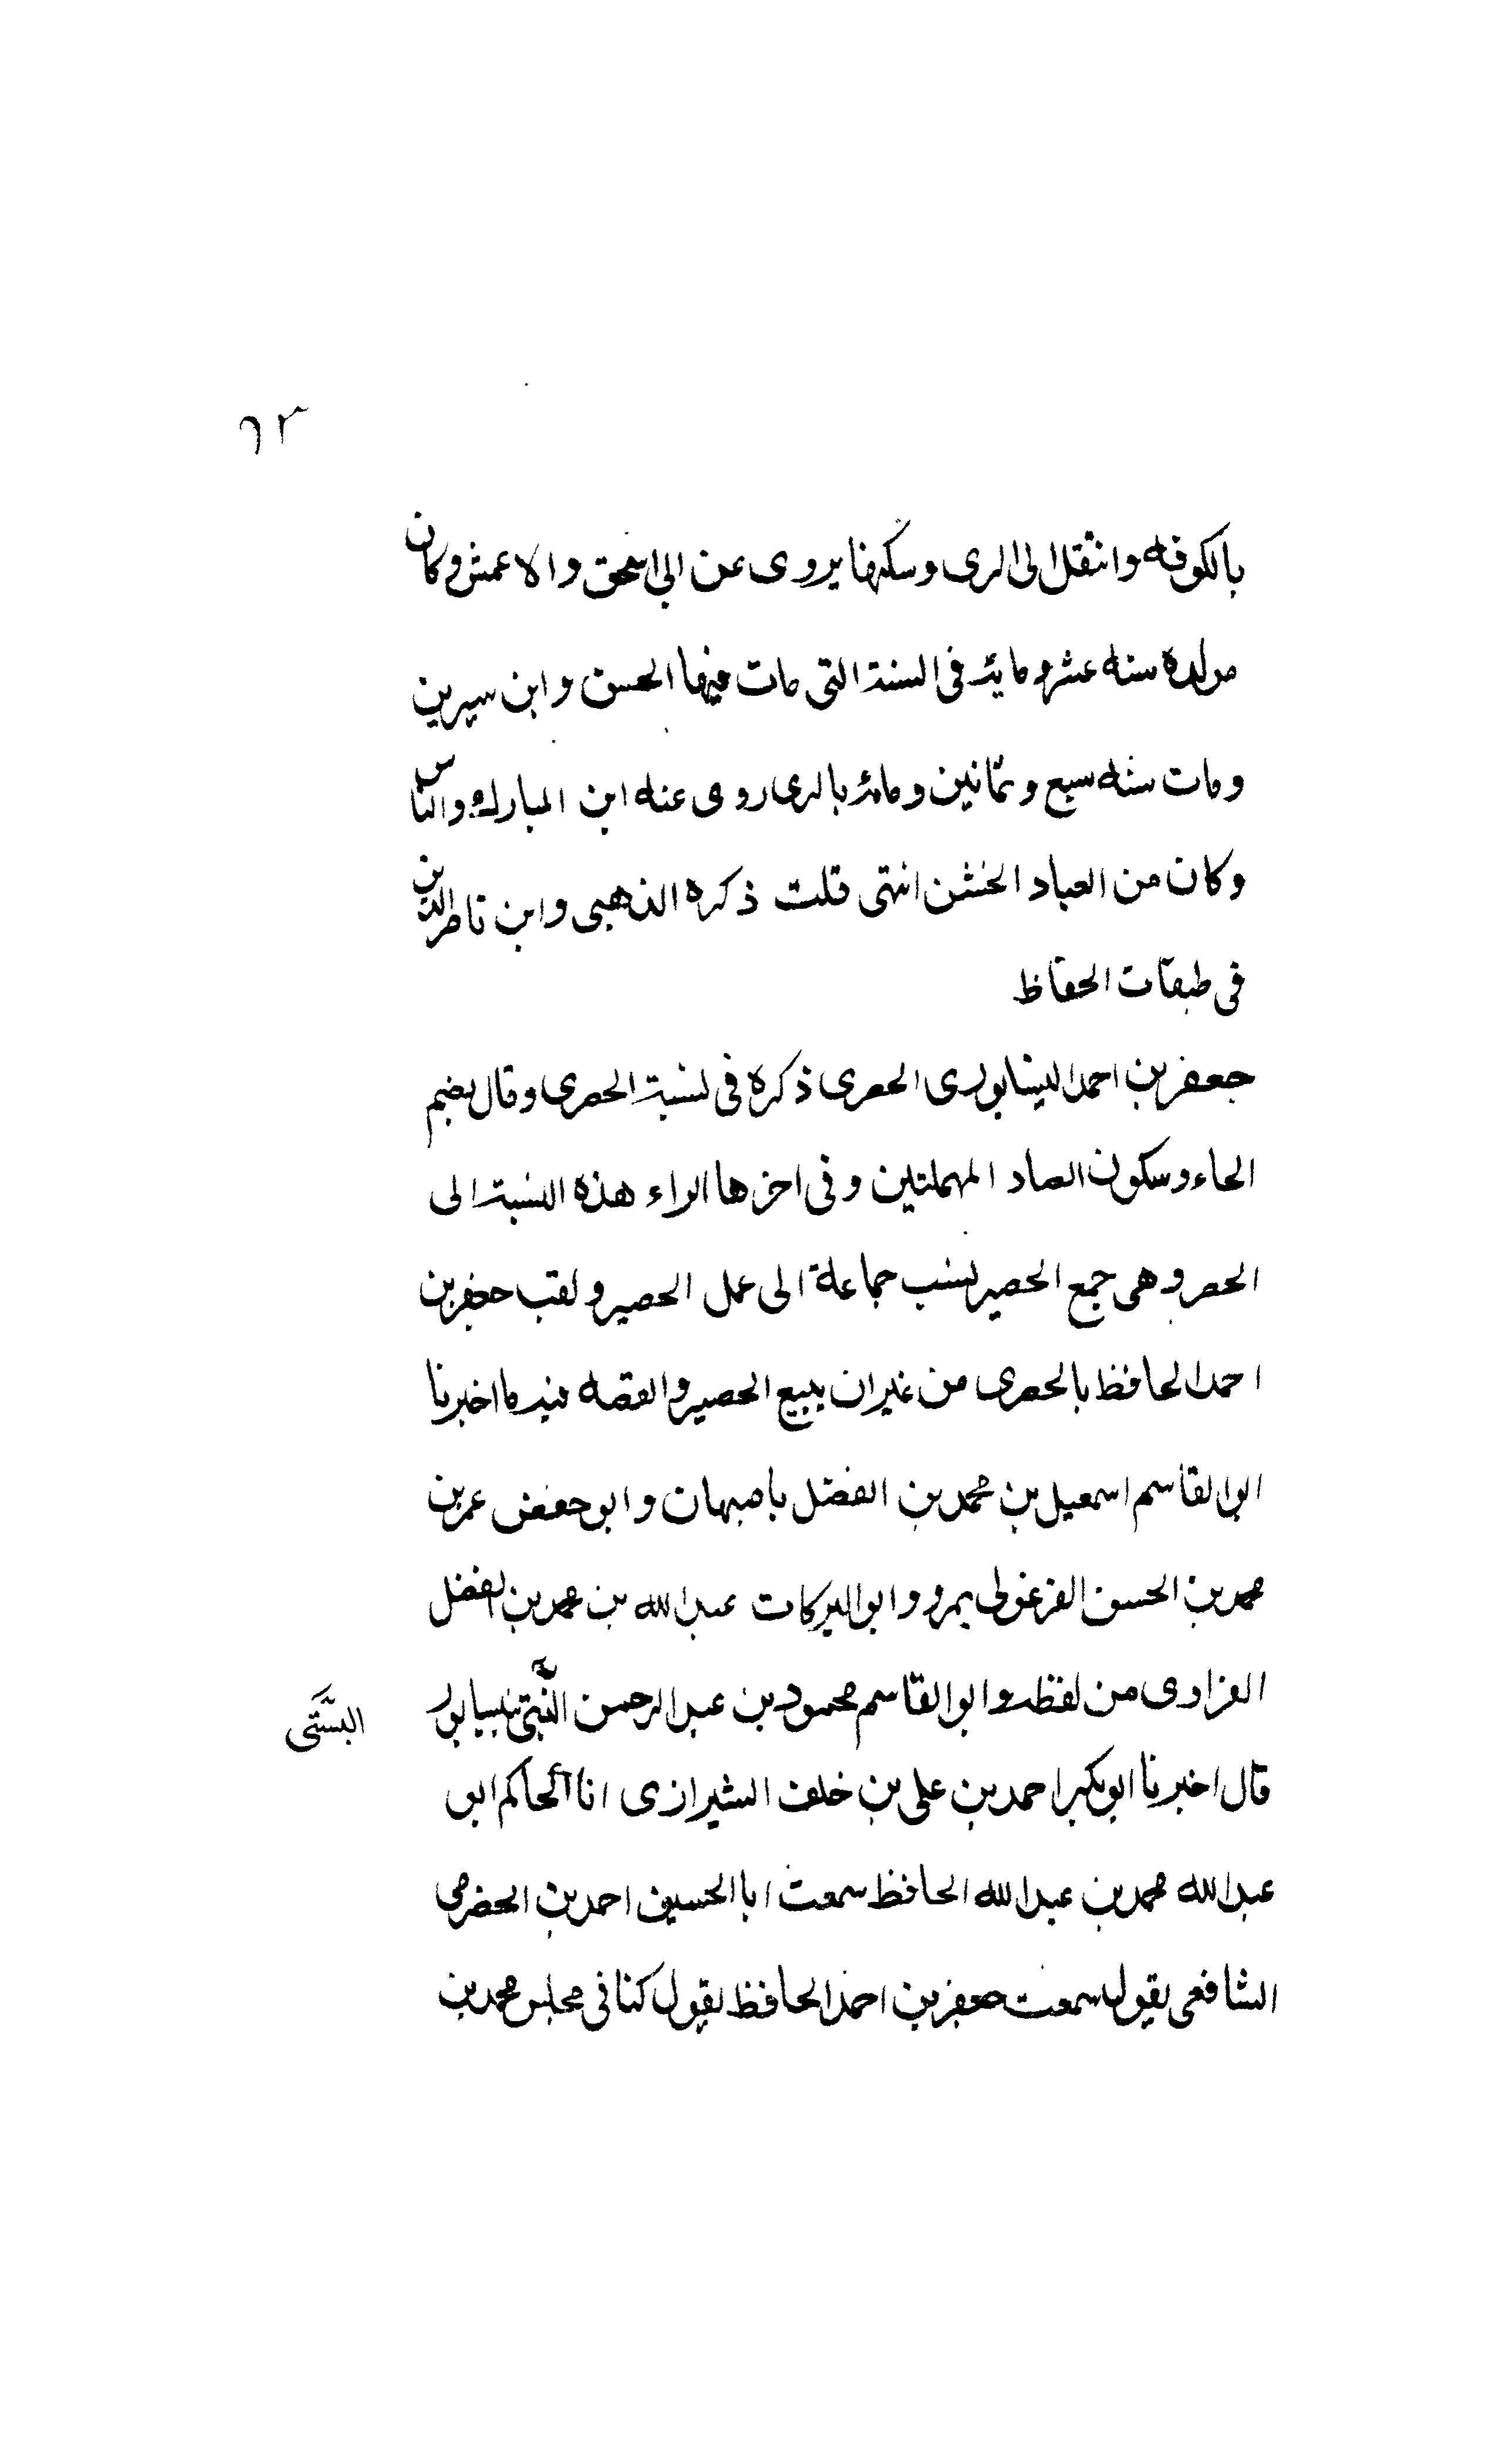 ٦٢
بالكوفه وانتقل الى الرى وسكنها يروى عن ابى اسحق والاعمش وكان
مولده سنه عشر ومائة فى السنة التى مات فيها الحسن وابن سيرين
ومات سنه سبع وثمانين ومائة بالرى روى عنه ابن المبارك والناس
وكان من العباد الخشن انتهى قلت ذكره الذهبى وابن ناصر الدين
فى طبقات الحفاظ
جعفر بن احمد النيسابورى الحصرى ذكره فى نسبة الحصرى وقال بضم
الحاء وسكون الصاد المهملتين وفى اخرها الراء هذه النسبة الى
الحصر وهى جمع الحصير نسب جماعة الى عمل الحصير ولقب جعفر بن
احمد الحافظ بالحصرى من غير ان يبيع الحصير والقصه فيه ما اخبرنا
ابو القاسم اسمعيل بن محمد بن الفضل باصبهان وابو حفص عمر بن
محمد بن الحسن الفرغولى بمرو وابو البركات عبد الله بن محمد بن الفضل
الفزاوى من لفظه وابو القاسم محمود بن عبد الرحمن بنيسابور
البستى
قال اخبرنا ابو بكر احمد بن على بن خلف الشيرازى انا الحاكم ابو
عبد الله محمد بن عبد الله الحافظ سمعت ابا الحسين احمد بن الحضرمى
الشافعى يقول سمعت جعفر بن احمد الحافظ يقول كنا فى مجلس محمد بن